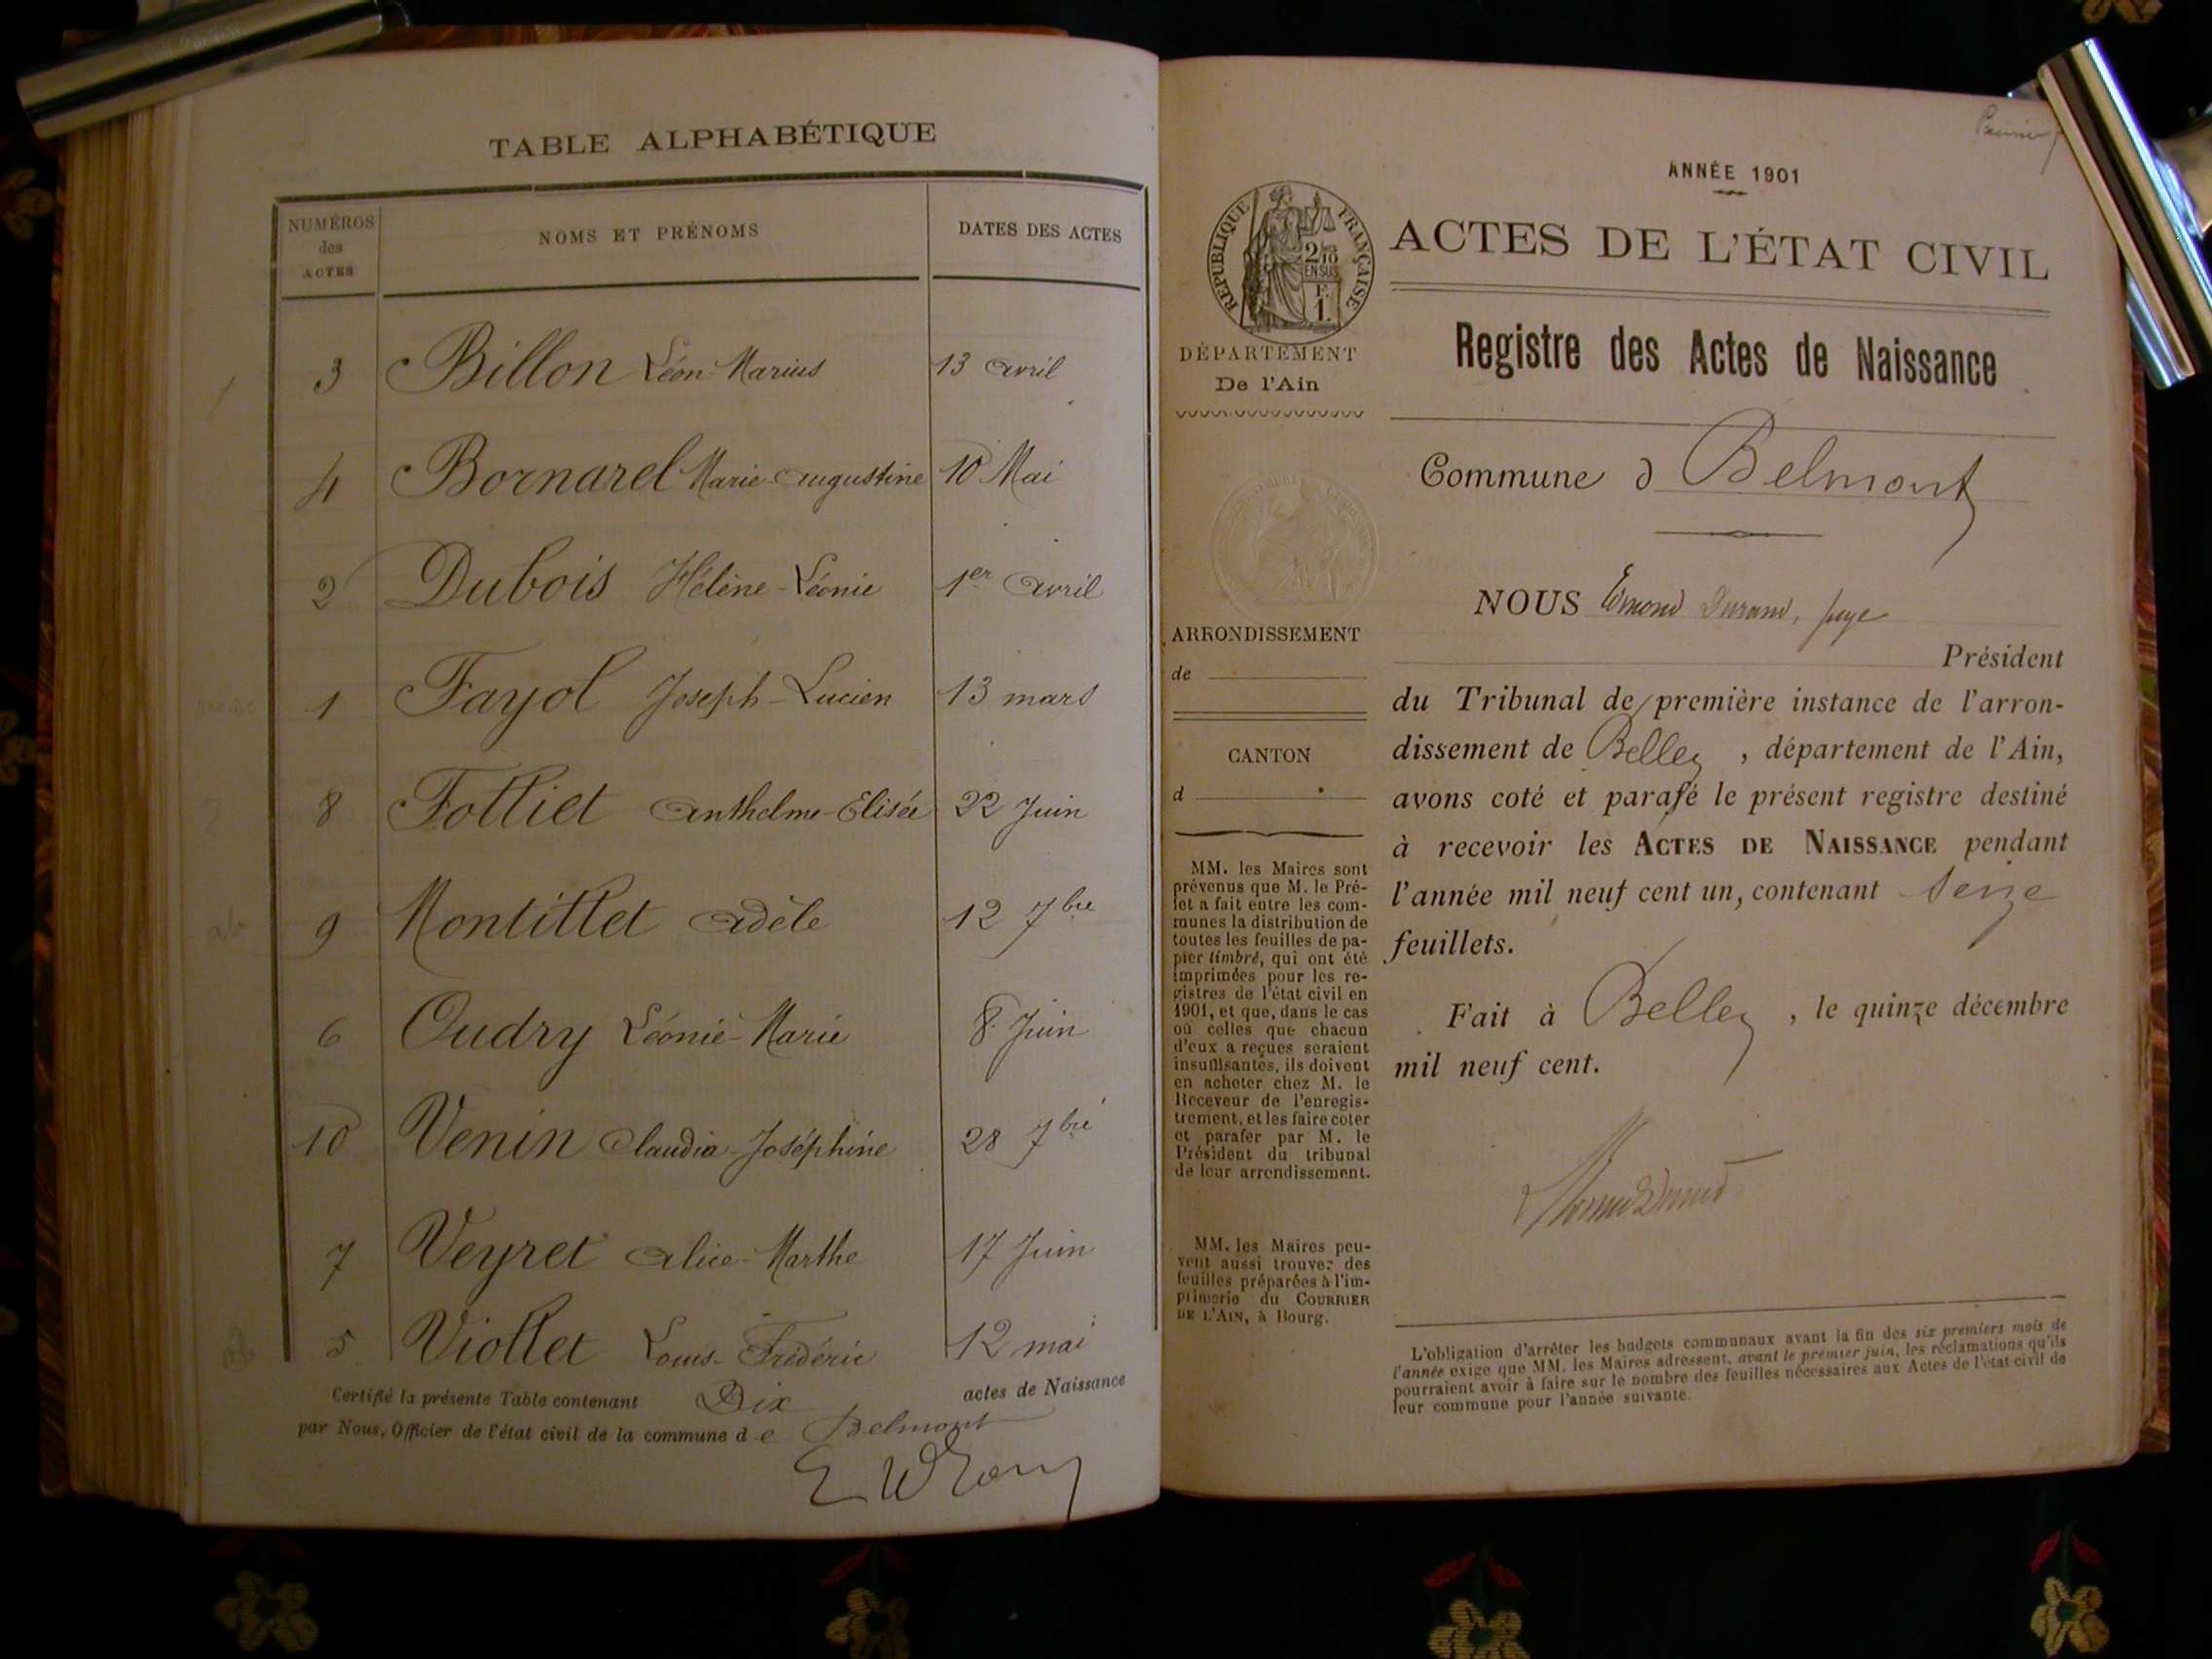 TABLE ALPHABÉTIQUE
NUMÉROS
des
ACTES
NOMS ET PRÉNOMS
DATES DES ACTES
3 Billon Léon-Marius 13 avril
4 Bornarel Marie-Augustine 10 Mai
2 Dubois Hélène-Léonie 1er avril
1 Fayol Joseph-Lucien 13 mars
8 Folliet Anthelme-Elisée 22 Juin
9 Montillet Adèle 12 7bre
6 Oudry Léonie-Marie 8 Juin
10 Venin Claudia-Joséphine 28 7bre
7 Veyret Alice-Marthe 17 Juin
5 Viollet Louis-Frédéric 12 mai
Certifié la présente Table contenant Dix actes de Naissance
par Nous, Officier de l'état civil de la commune de Belmont
ANNÉE 1901
RÉPUBLIQUE FRANÇAISE
2/10
EN SUS
F.
1.
ACTES DE L'ÉTAT CIVIL
DÉPARTEMENT
De l'Ain
Registre des Actes de Naissance
Commune d Belmont
NOUS Edmond Durand, juge
Président
ARRONDISSEMENT
de
CANTON
d
du Tribunal de première instance de l'arron-
dissement de Belley, département de l'Ain,
avons coté et parafé le présent registre destiné
à recevoir les ACTES DE NAISSANCE pendant
l'année mil neuf cent un, contenant Seize
feuillets.
Fait à Belley, le quinze décembre
mil neuf cent.
MM. les Maires sont
prévenus que M. le Pré-
fet a fait entre les com-
munes la distribution de
toutes les feuilles de pa-
pier timbré, qui ont été
imprimées pour les re-
gistres de l'état civil en
1901, et que, dans le cas
où celles que chacun
d'eux a reçues seraient
insuffisantes, ils doivent
en acheter chez M. le
Receveur de l'enregis-
trement, et les faire coter
et parafer par M. le
Président du tribunal
de leur arrondissement.
MM. les Maires peu-
vent aussi trouver des
feuilles préparées à l'im-
primerie du COURRIER
DE L'AIN, à Bourg.
L'obligation d'arrêter les budgets communaux avant la fin des six premiers mois de
l'année exige que MM. les Maires adressent, avant le premier juin, les réclamations qu'ils
pourraient avoir à faire sur le nombre des feuilles nécessaires aux Actes de l'état civil de
leur commune pour l'année suivante.